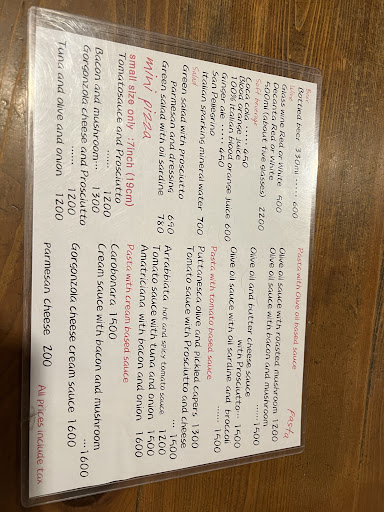 Beer
Bottled beer 330ml ..... 600
Wine
Glass wine Red or White 500
Decanta Red or White
500ml (about five glasses) 2200
Soft beverage
Coca cola .... 450
Blood orange juice
100% Italian blood orange juice 600
Ginger ale ..... 450
San Pellegrino
Italian sparking mineral water 700
Salad
Green salad with prosciutto
Parmesan and dressing 690
Green salad with oil sardine 780
mini pizza
small size only :7inch (19cm)
Tomatosauce and Prosciutto
..... 1200
Bacon and mushroom... 1300
Gorgonzola cheese and Prosciutto
..... 1200
Tuna and olive and onion 1200
pasta
Pasta with Olive oil based sauce
Olive oil sauce with roasted mushroom 1200
Olive oil sauce with bacon and mushroom
...... 1500
Olive oil and butter cheese sauce
with Prosciutto... 1500
Olive oil sauce with oil sardine and broccoli
...... 1500
Pasta with tomato based sauce
Puttanesca olive and pickled capers 1300
Tomato sauce with Prosciutto and cheese
... 1500
Arrabbiata hot and spicy tomato sauce 1200
Tomato sauce with tuna and onion 1500
Amatriciana with bacon and onion 1600
Pasta with cream based sauce
Carobonara 1500
Cream sauce with bacon and mushroom
... 1600
Gorgonzola cheese cream sauce 1600
Parmesan cheese 200
All prices include tax